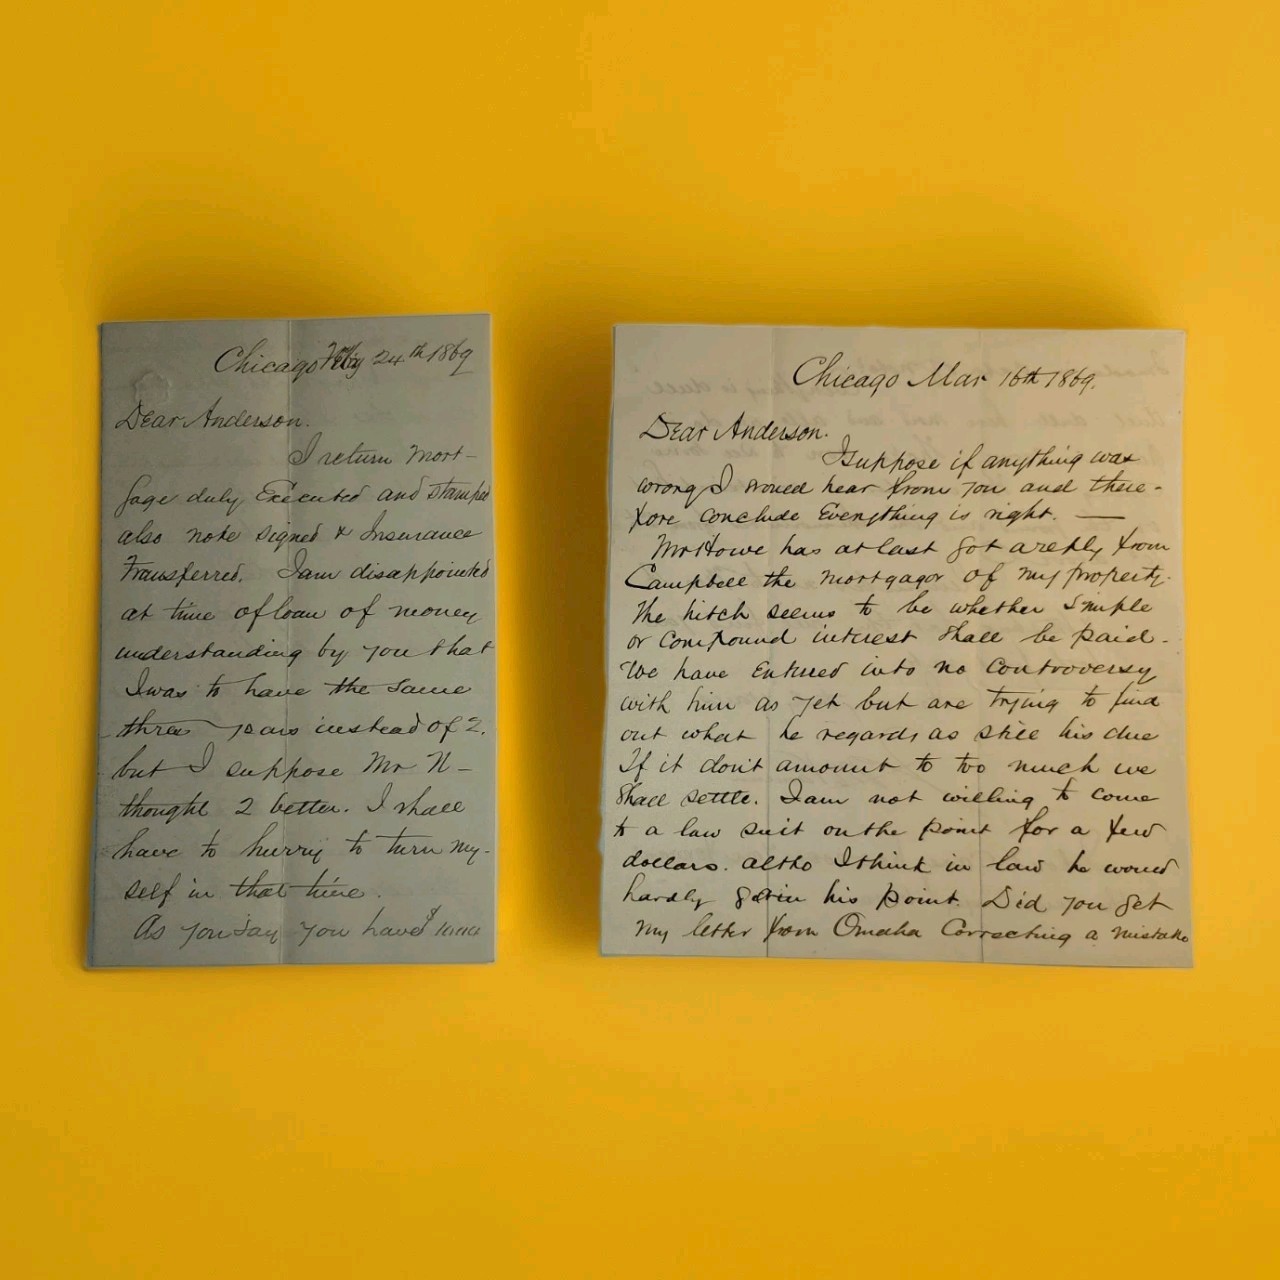 Chicago Feby 24th 1869
Dear Anderson.
I return Mort-
gage duly Executed and stamped
also note signed & Insurance
Transferred. I am disappointed
at time of loan of money
understanding by you that
I was to have the same
three years instead of 2.
but I suppose Mr N-
thought 2 better. I shall
have to hurry to turn my-
self in that time.
As you say you have $
Chicago Mar 16th 1869.
Dear Anderson.
I suppose if anything was
wrong I woued hear from you and there-
fore conclude Everything is right. —
Mr Howe has at last got a reply from
Campbell the mortgagor of my property.
The hitch seems to be whether Simple
or Compound interest shall be paid-
We have Entered into no Controversy
with him as yet but are trying to find
out what he regards as still his due
If it dont amount to too much we
shall settle. I am not willing to come
to a law suit on the point for a few
dollars. altho I think in law he would
hardly gain his point. Did you get
my letter from Omaha Correcting a mistake